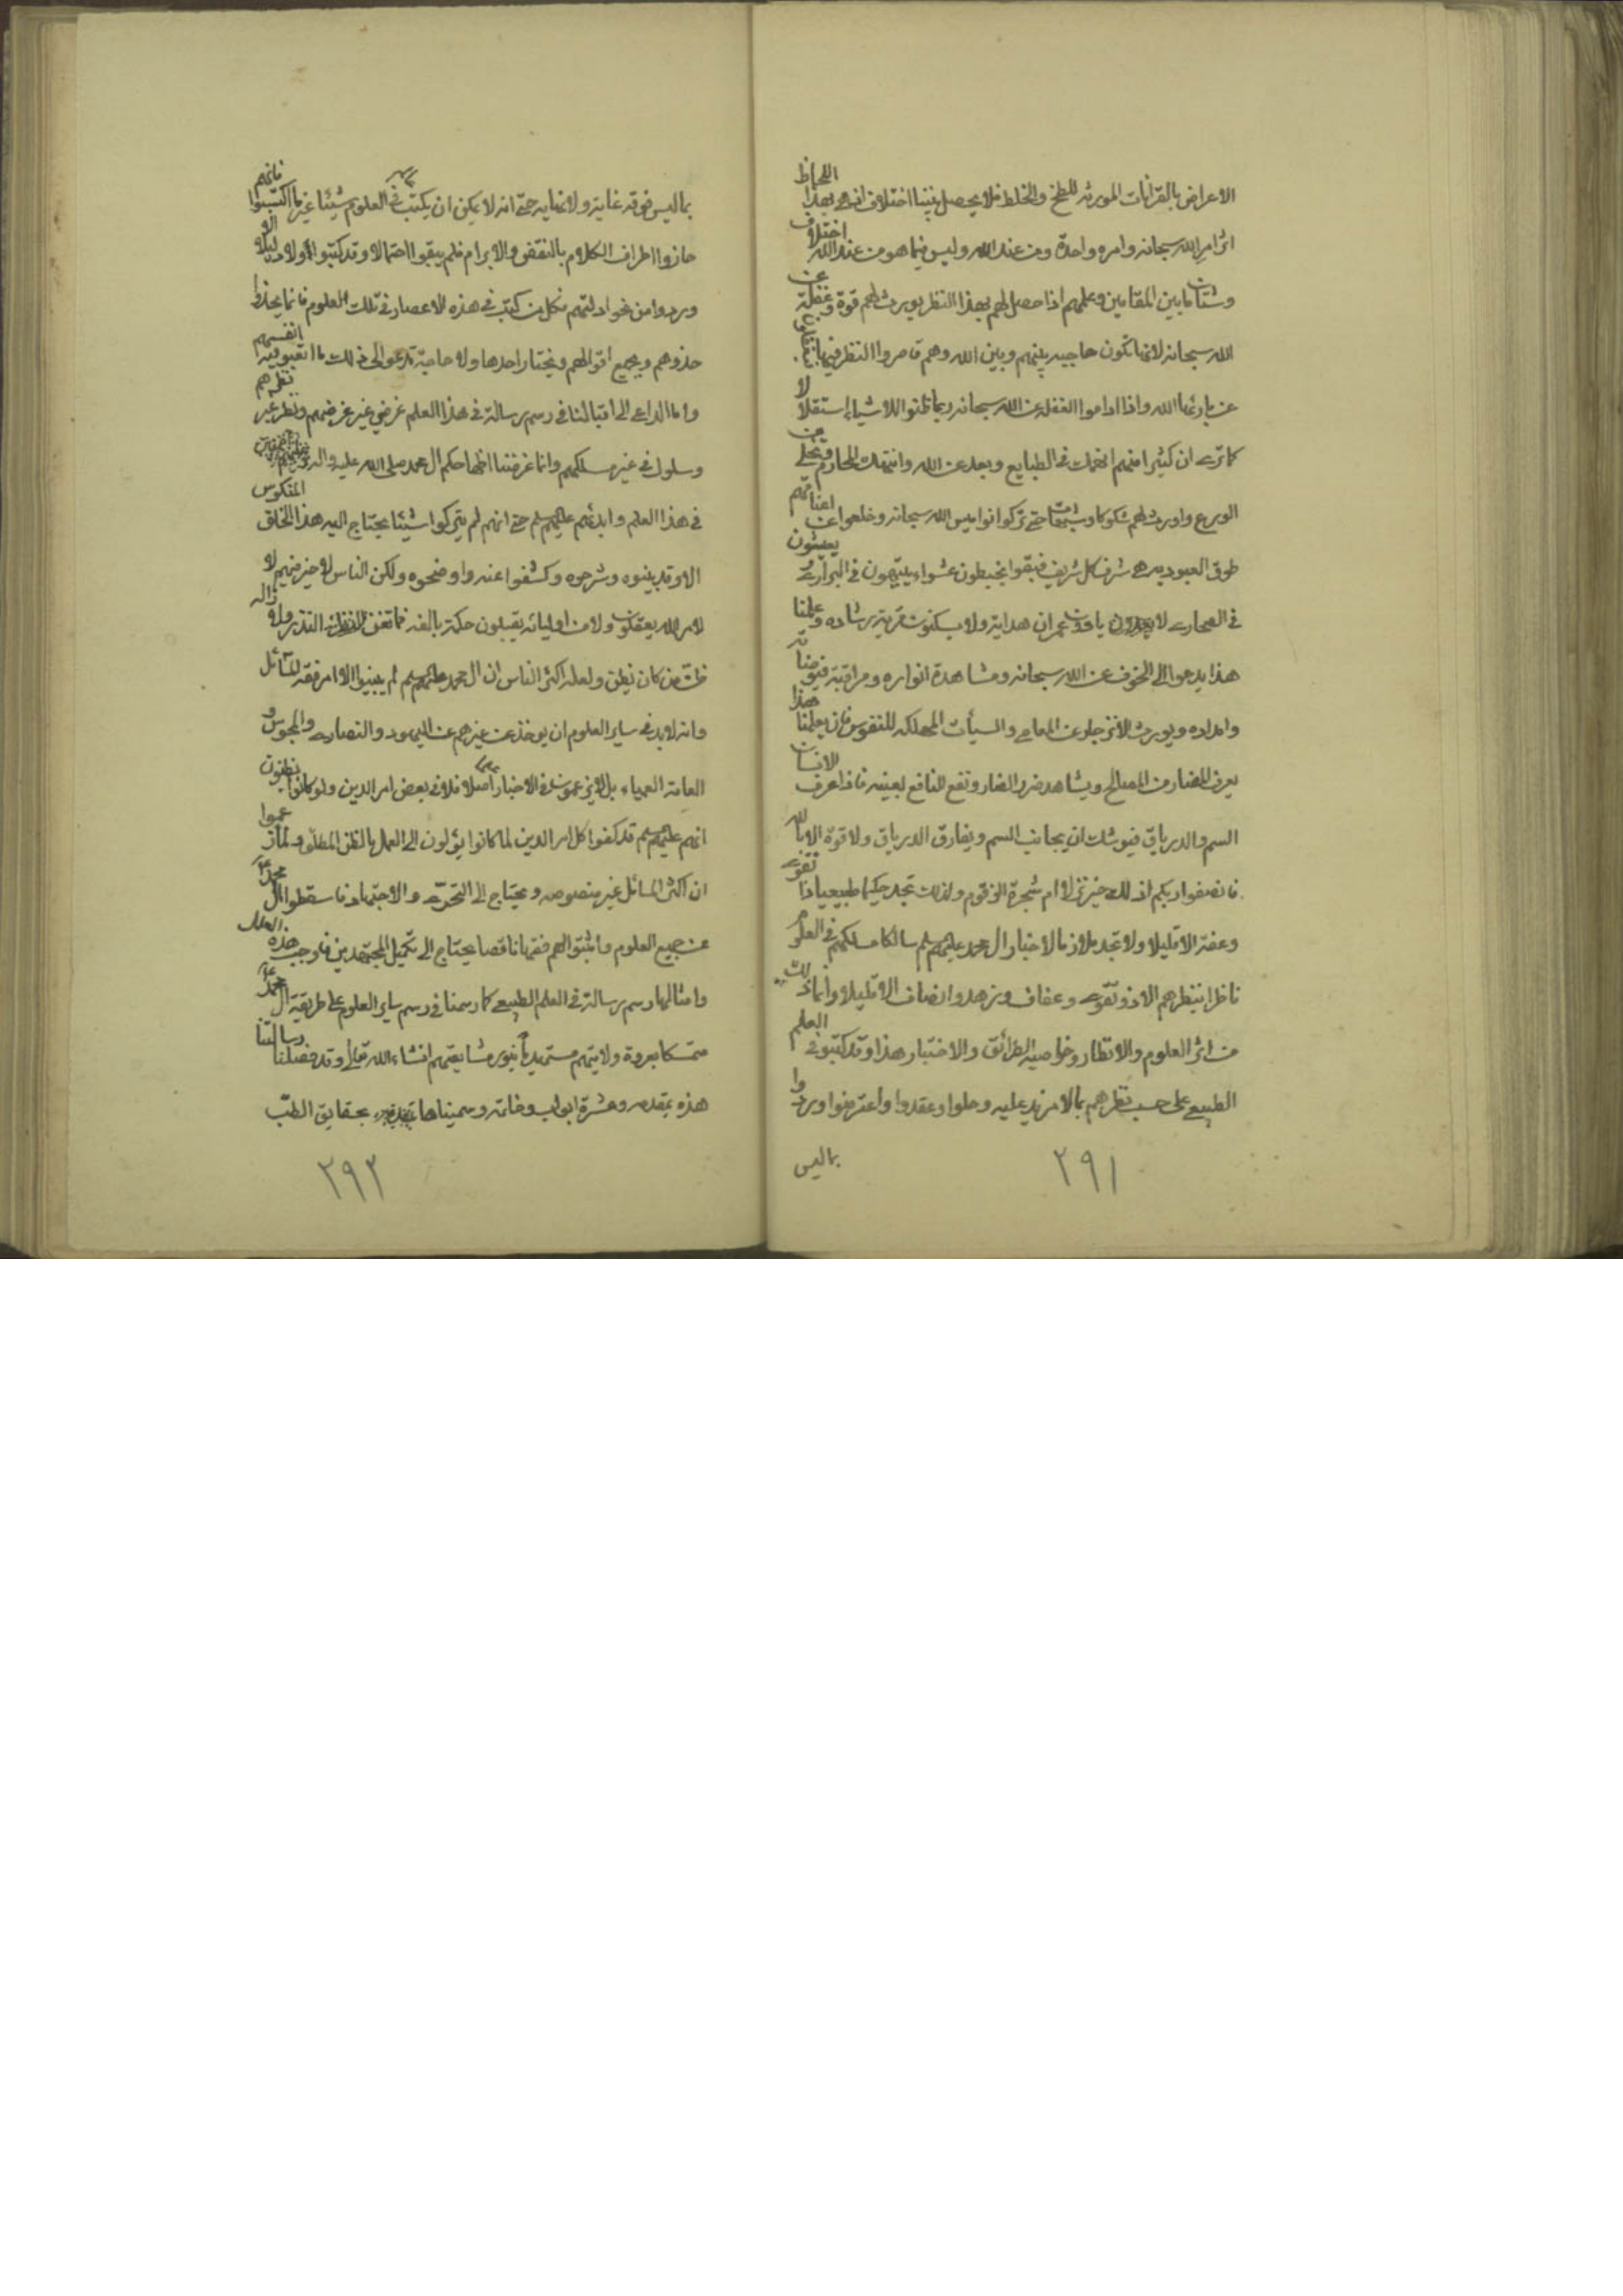 الاعراض بالقرانات المورثه للطخ والخلط فلا يحصل بيننا اختلاف انه بهذا اللحاظ
اثر امر الله سبحانه وامره واحدة ومن عند الله وليس فيما هو من عند الله اختلاف
وشتان مابين المقامين وعلمهم اذا حصل لهم بهذا النظر يورث لهم قوة وغفلة عن
الله سبحانه لانها تكون حاجبه بينهم وبين الله وهم قاصروا النظر فيها
عن بارئها الله واذا اداموا الغفله عن الله سبحانه ربما ظنوا للاشياء استقلالا
كما ترى ان كثيرا منهم انغمك في الطبايع وبعد عن الله وانتهك المحارم وتخلى من
الورع واورث لهم شكوكا وشبهات حتى تركوا نواميس الله سبحانه وخلعوا عن اعناقهم
طوق العبوديه هي شرف كل شريف فبقوا يخبطون عشواء يتيهون في البراري يعيثون
في الصحاري لا يجدون يافوت عمران هداية ولا يسكنون قرية رشاده وعلمنا
هذا يدعوا الى الخوف عن الله سبحانه ومشاهدة انواره ومراقبة فيوضاته
وامداده ويورث الانزجار عن المعاصي والسيآت المهلكه للنفوس فان بعلمنا هذا
يعرف المضار من المصالح ويشاهد ضرر الضار ونفع النافع بعينه فاذا عرف الانسان
السم والدرياق فيوشك ان يجانب السم ويفارق الدرياق ولا قوة الا بالله
فانصفوا ربكم اذلك خير نزلا ام شجرة الزقوم ولذلك تجد حكيما طبيعيا ذا تقوى
وعفة الا قليلا ولا تجد ملازما لاخبار ال محمد عليهم سلم سالكا مسلكهم في العلوم
ناظرا بنظرهم الا ذو تقوى وعفاف وزهد وانصاف الا قليلا وانما ذلك
من اثر العلوم والانظار وخواصيه القرائق والاختبار هذا وقد كتبوا في العلم
الطبيعي على حسب نظرهم بما لا مزيد عليه وحلوا وعقدوا واعترضوا وردوا
بماليس
٢٩١
بماليس فوقه غاية ولا نهايه حتى انه لا يمكن ان يكتب في العلوم شيئا غير ما اكتسبوا فانهم
حازوا اطراف الكلام بالنقض والابرام فلم يبقوا احتمالا وقد كتبوا اولا دليلا الا
وردوا من نحو ادلتهم فكل من كتب في هذه الاعصار في تلك العلوم فانما يحذوا
حذوهم ويجمع اقوالهم ويختار احدها ولا حاجة تدعو الى ذلك ما اتعبوا فيه انفسهم
واما الداعي الى اقبالنا في رسم رسالة في هذا العلم غرضي غير غرضهم ونظر غير نظرهم
وسلوك في غير مسلكهم وانما غرضنا اظهار حكم ال محمد صلى الله عليه واله
في هذا العلم وابدئهم عليهم سلم حتى انهم لم يتركوا شيئا يحتاج اليه هذا الخلق المنكوس
الا وقد بينوه وشرحوه وكشفوا عنه واوضحوه ولكن الناس لا خير فيهم لا
لامر الله يعقلون ولا من اوليائه يقبلون حكمة بالغه فما تغن النذر ولازاله
ظن من كان يظن ولعله اكثر الناس ان ال محمد عليهم سلم لم يبينوا الا امر فقه المسائل
وانه لابد في ساير العلوم ان يوخذ عن غيرهم عن اليهود والنصارى والمجوس و
العامة العمياء بل لا يرجعون في الاخبار اصلا فلا في بعض امر الدين ولو كانوا يظنون
انهم عليهم سلم قد كفوا كل امر الدين لما كانوا يؤلون الى العمل بالظن المطلق ولما زعموا
ان اكثر المسائل غير منصوصه ويحتاج الى التحرى والاجتهاد فاسقطوا ال محمد ع
عن جميع العلوم واثبتوا لهم فقها ناقصا يحتاج الى تكميل المجتهدين فاوجب هذه العلل
وامثالها رسم رسالة في العلم الطبيعي كما رسمنا في رسم ساير العلوم على طريقة ال محمد ع
متمسكا بعروة ولايتهم مستمدا بنور مشايعتهم انشاء الله تعالى وقد فصلنا رسالتنا
هذه بمقدمه وعشرة ابواب وخاتمه وسميناها بحقايق الطب
٢٩٢